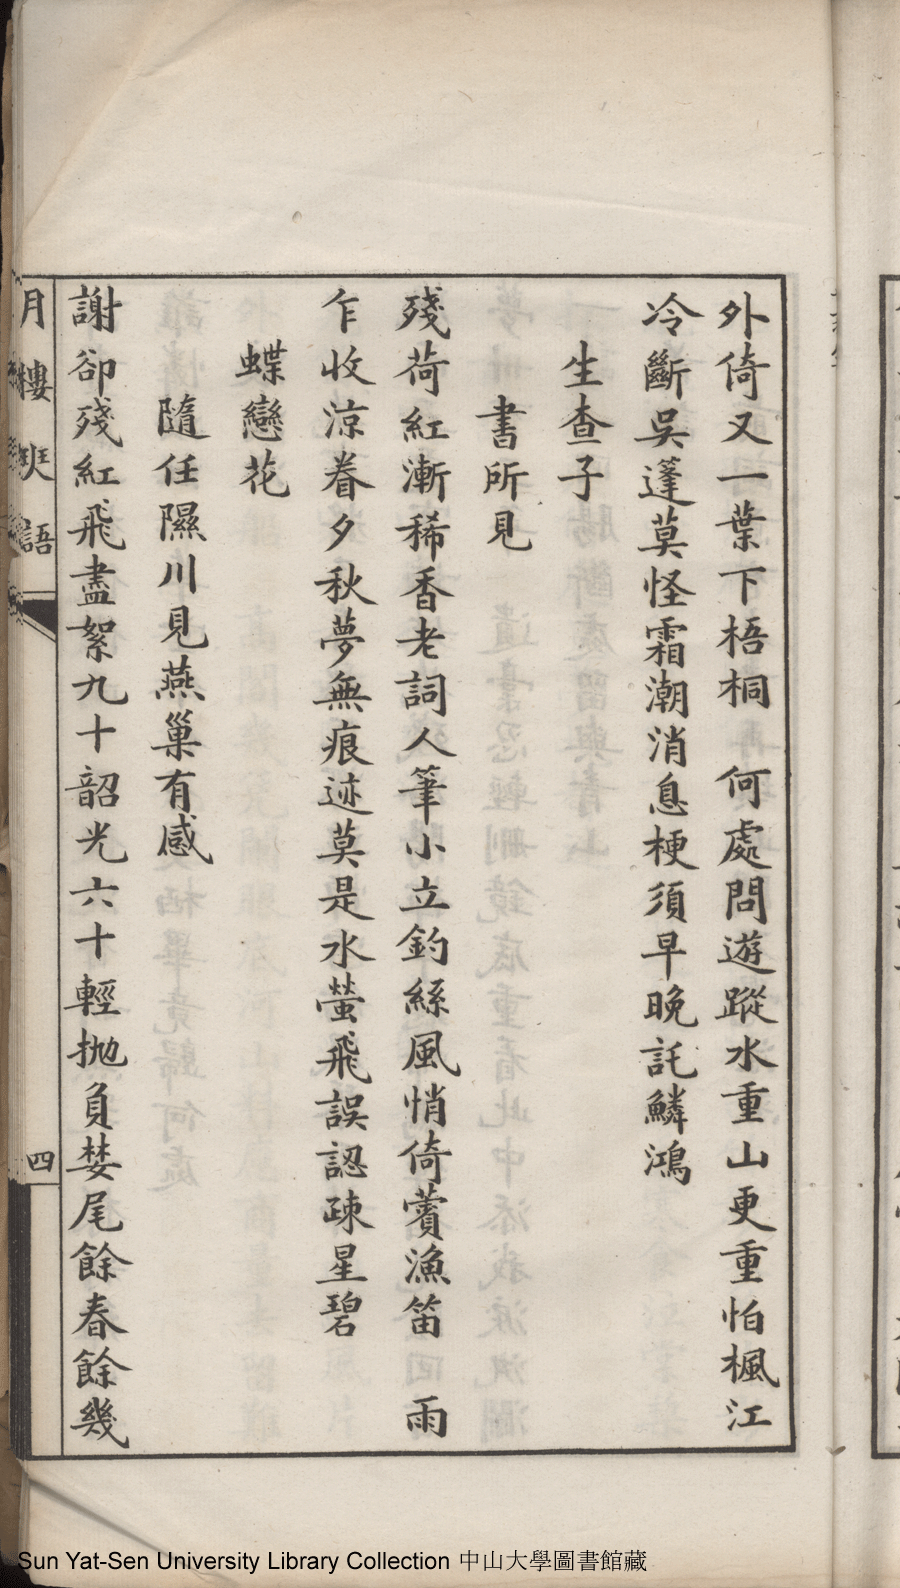 外倚又一葉下梧桐　何處問遊蹤水重山更重怕楓江
冷斷吳篷莫怪霜潮消息梗須早晚託鱗鴻
生查子
書所見
殘荷紅漸稀香老詞人筆小立釣絲風悄倚薲漁笛　雨
乍收涼眷夕秋夢無痕迹莫是水螢飛誤認疎星碧
蝶戀花
隨任隰川見燕巢有感
謝卻殘紅飛盡絮九十韶光六十輕抛負婪尾餘春餘幾
月樓琖語
四
Sun Yat-Sen University Library Collection 中山大學圖書館藏